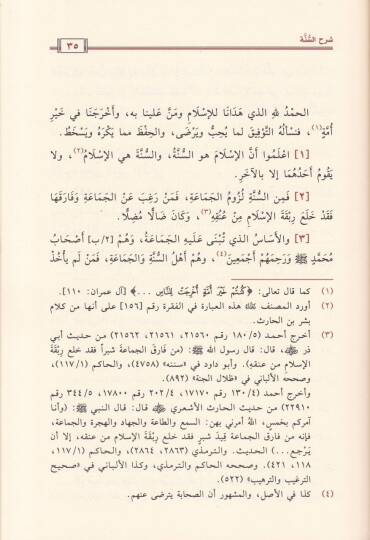 شرح السُّنَّة
٣٥
الحمْدُ للهِ الذي هَدَانَا للإسْلَامِ ومَنَّ عَلينا به، وأَخْرَجَنَا في خَيْرِ
أُمَّةٍ(١)، فنَسألُهُ التَّوْفِيقَ لما يُحِبُّ ويَرْضَى، والحِفْظَ مما يَكْرَهُ ويَسْخَطُ.
[١] اعْلَمُوا أنَّ الإسْلَامَ هو السُّنَّةُ، والسُّنَّةَ هي الإسْلَامُ(٢)، ولا
يَقُومُ أَحَدُهُمَا إلا بالآخَرِ.
[٢] فَمِن السُّنَّةِ لُزُومُ الجَمَاعَةِ، فَمَنْ رَغِبَ عَنْ الجَمَاعَةِ وفَارَقَهَا
فَقَدْ خَلَعَ رِبْقَةَ الإسْلَامِ مِنْ عُنُقِهِ(٣)، وَكَانَ ضَالًّا مُضِلًّا.
[٣] والأَسَاسُ الذي تُبْنَى عَلَيهِ الجَمَاعَةُ، وَهُمْ [٢/ب] أَصْحَابُ
مُحَمَّدٍ ﷺ ورَحِمَهُمْ أَجْمَعِينَ(٤)، وهُم أَهْلُ السُّنَّةِ والجَمَاعَةِ، فَمَنْ لَم يأْخُذْ
(١) كما قال تعالى: ﴿كُنتُمْ خَيْرَ أُمَّةٍ أُخْرِجَتْ لِلنَّاسِ ...﴾ [آل عمران: ١١٠].
(٢) أورد المصنف هذه العبارة في الفقرة رقم [١٥٦] على أنها من كلام
بشر بن الحارث.
(٣) أخرج أحمد (١٨٠/٥ رقم ٢١٥٦٠، ٢١٥٦١، ٢١٥٦٢) من حديث أبي
ذر، قال: قال رسول الله ﷺ: (من فارقَ الجماعةَ شبراً فقد خلع رِبْقَةَ
الإسلامِ من عنقهِ). وأبو داود في «سننه» (٤٧٥٨)، والحاكم (١١٧/١)،
وصححه الألباني في «ظلال الجنة» (٨٩٢).
وأخرج أحمد (١٣٠/٤ رقم ١٧١٧٠، ٢٠٢/٤ رقم ١٧٨٠٠، ٣٤٤/٥ رقم
٢٢٩١٠) من حديث الحارث الأشعري قال: قال النبي ﷺ: (وأنا
آمركم بخمسٍ، اللهُ أمرني بهن: السمع والطاعة والجهاد والهجرة والجماعة،
فإنه من فارقَ الجماعةَ قِيدَ شبرٍ فقد خلع رِبْقَةَ الإسلامِ من عنقه، إلا أن
يَرْجع...) الحديث. والترمذي (٢٨٦٣، ٢٨٦٤)، والحاكم (١١٧/١،
١١٨، ٤٢١). وصححه الحاكم والترمذي، وكذا الألباني في «صحيح
الترغيب والترهيب» (٥٥٢).
(٤) كذا في الأصل، والمشهور أن الصحابة يترضى عنهم.